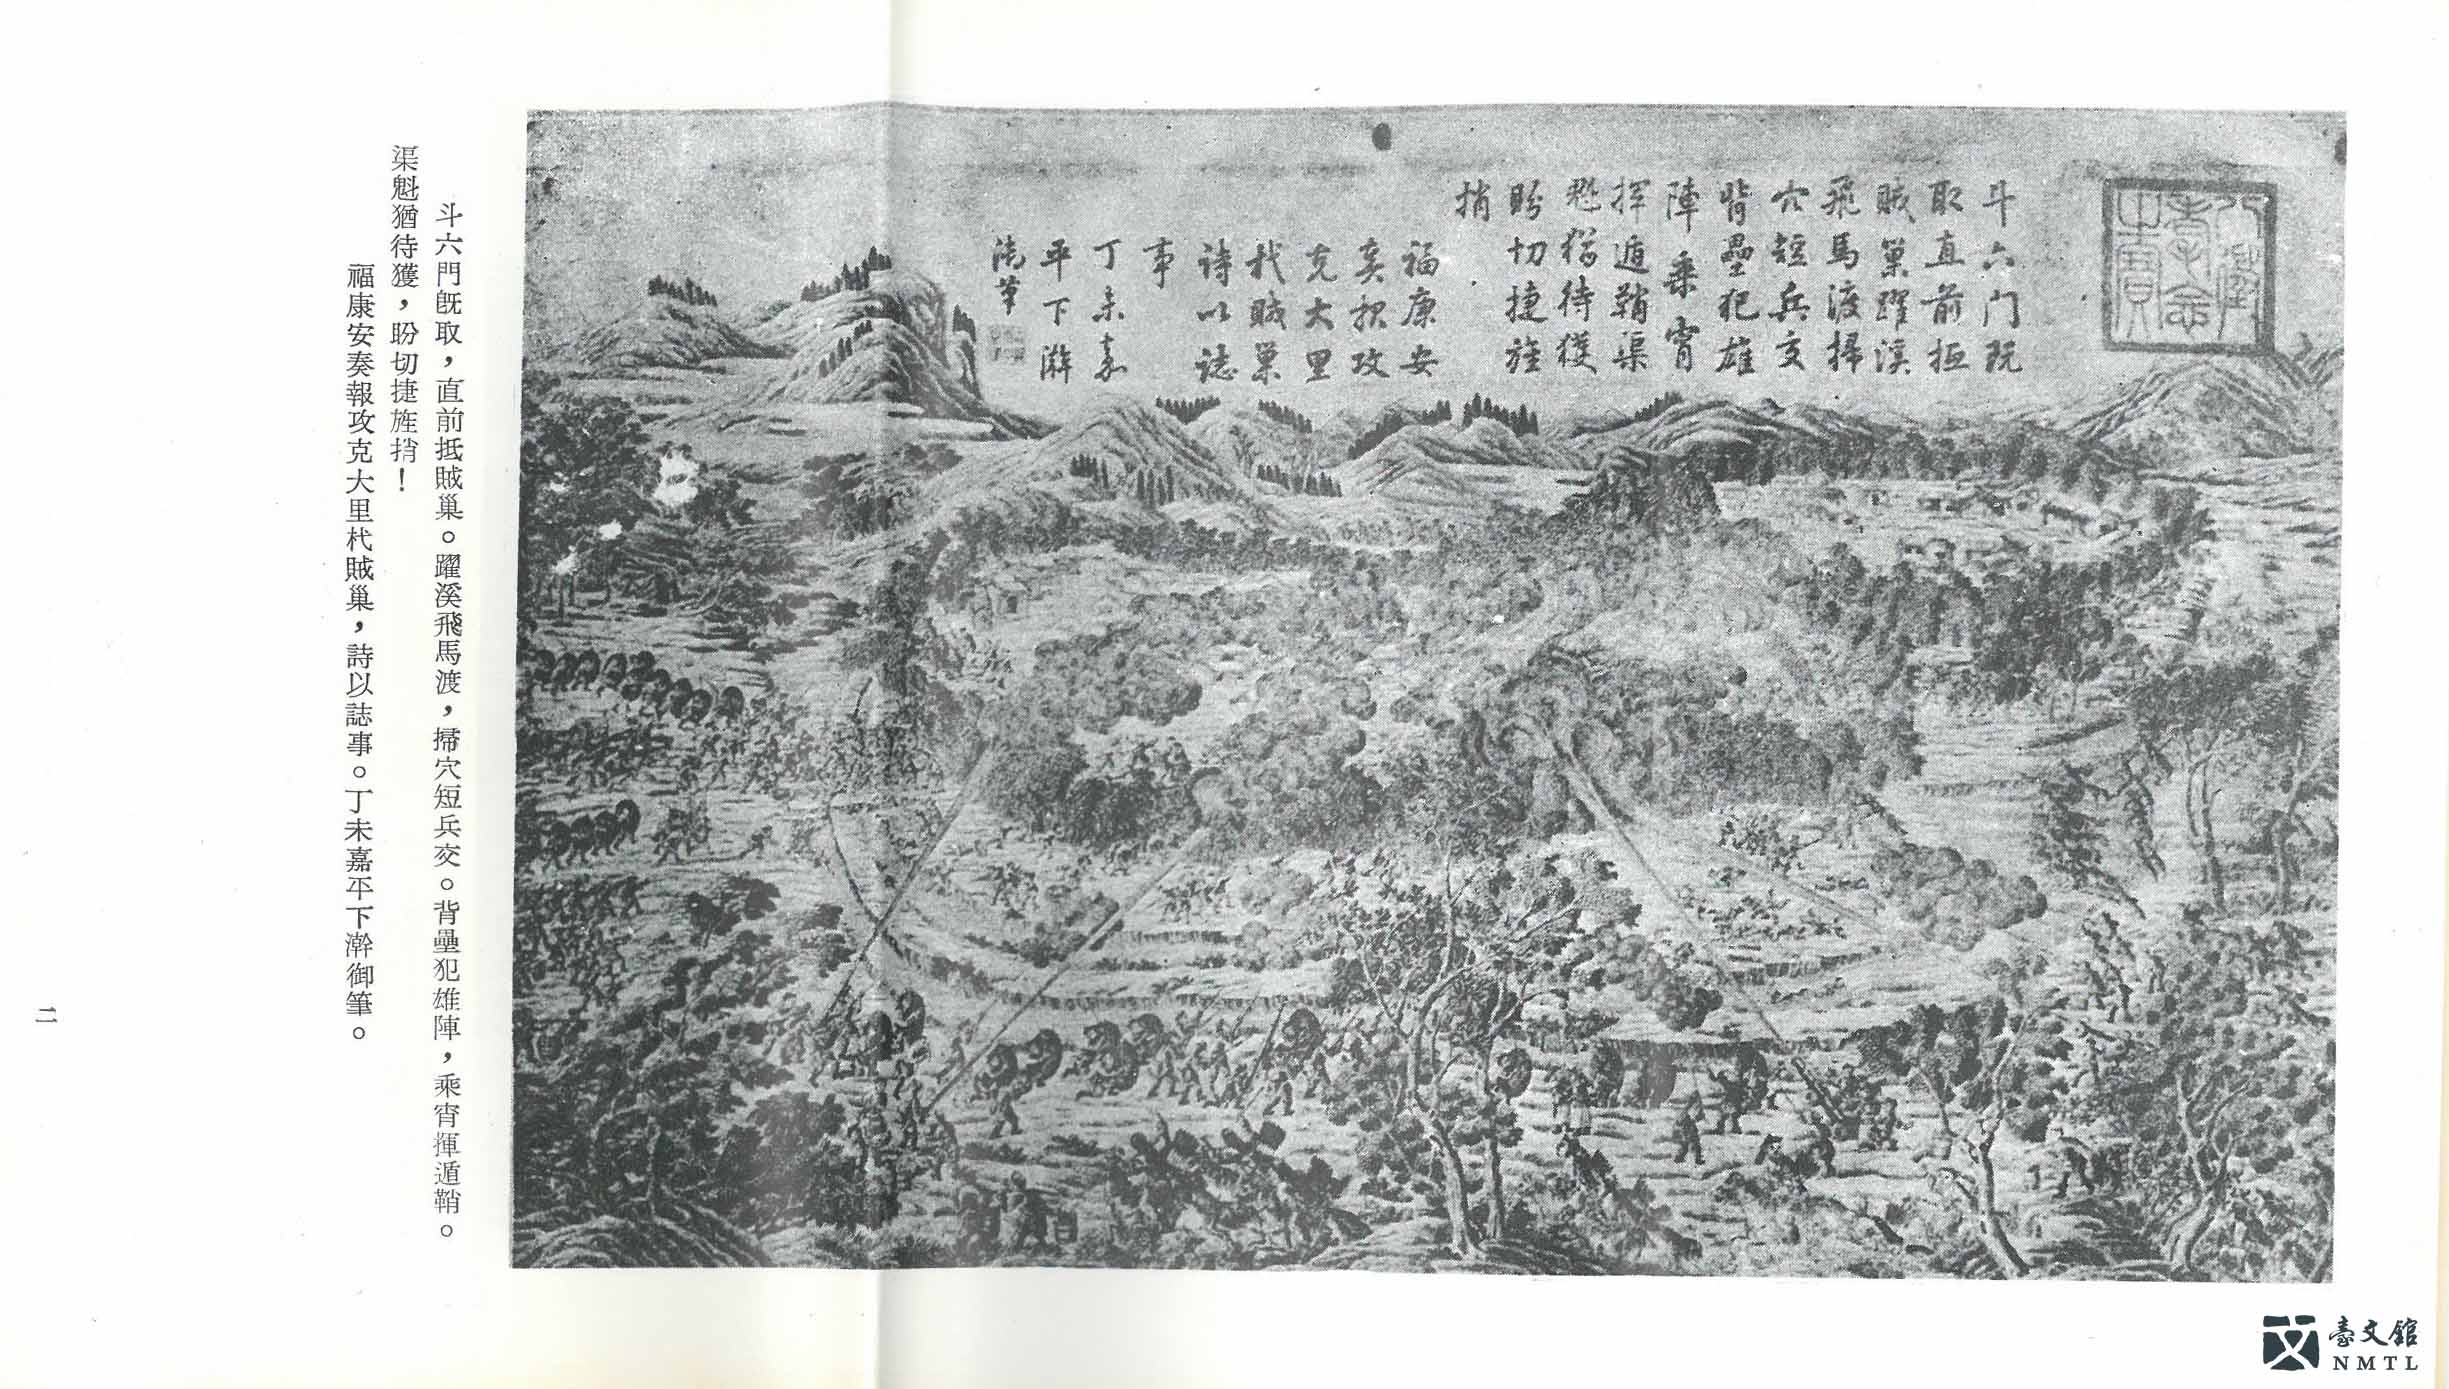 八徵耄念之寶
斗六门既
取直前抵
賊巢躍溪
飛馬渡掃
穴短兵交
背壘犯雄
陣乗宵
揮遁鞘渠
魁猶待獲
盼切捷旌
捎
福康安
奏報攻
克大里
杙賊巢
詩以誌
事
丁未嘉
平下澣
御筆
斗六門旣取，直前抵賊巢。躍溪飛馬渡，掃穴短兵交。背壘犯雄陣，乘宵揮遁鞘。
渠魁猶待獲，盼切捷旌捎！
福康安奏報攻克大里杙賊巢，詩以誌事。丁未嘉平下澣御筆。
二
臺文館
NMTL